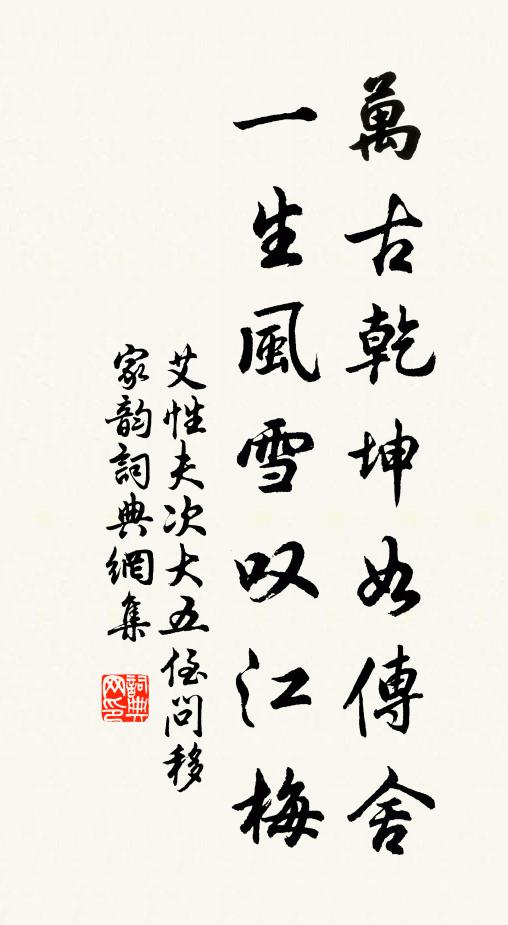 萬古乾坤如傳舍
一生風雪叹江梅
艾性夫次大五侄問移
家韵詞典網集
詞典网印